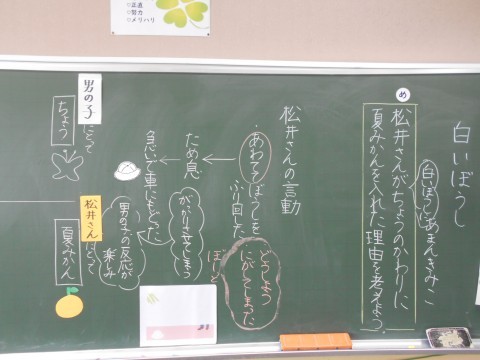 ○正直
○努力
○メリハリ
白いぼうし
あまんきみこ
め
松井さんがちょうのかわりに
白いぼうしに
夏みかんを入れた理由を考えよう。
松井さんの言動
・あわててぼうしを
ふり回した
どうしよう
にがしてしまった
ため息
急いで車にもどった
がっかりさせてしまう
男の子の反応が
楽しみ
男の子
にとって
ちょう
松井さん
にとって
夏みかん